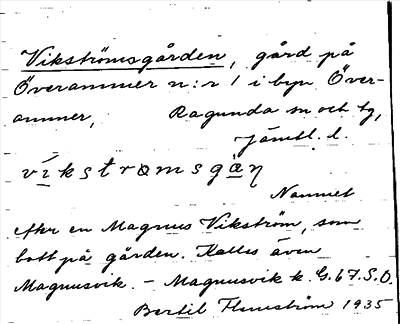 Vikströmsgården, gård på
Överammer n:r 1 i byn Över-
ammer, Ragunda sn och tg,
Jämtl. l.
víkstrømsgàṇ
Namnet
efter en Magnus Vikström, som
bott på gården. Kallas även
Magnusvik. – Magnusvik k. G. 67. S.O.
Bertil Flemström 1935